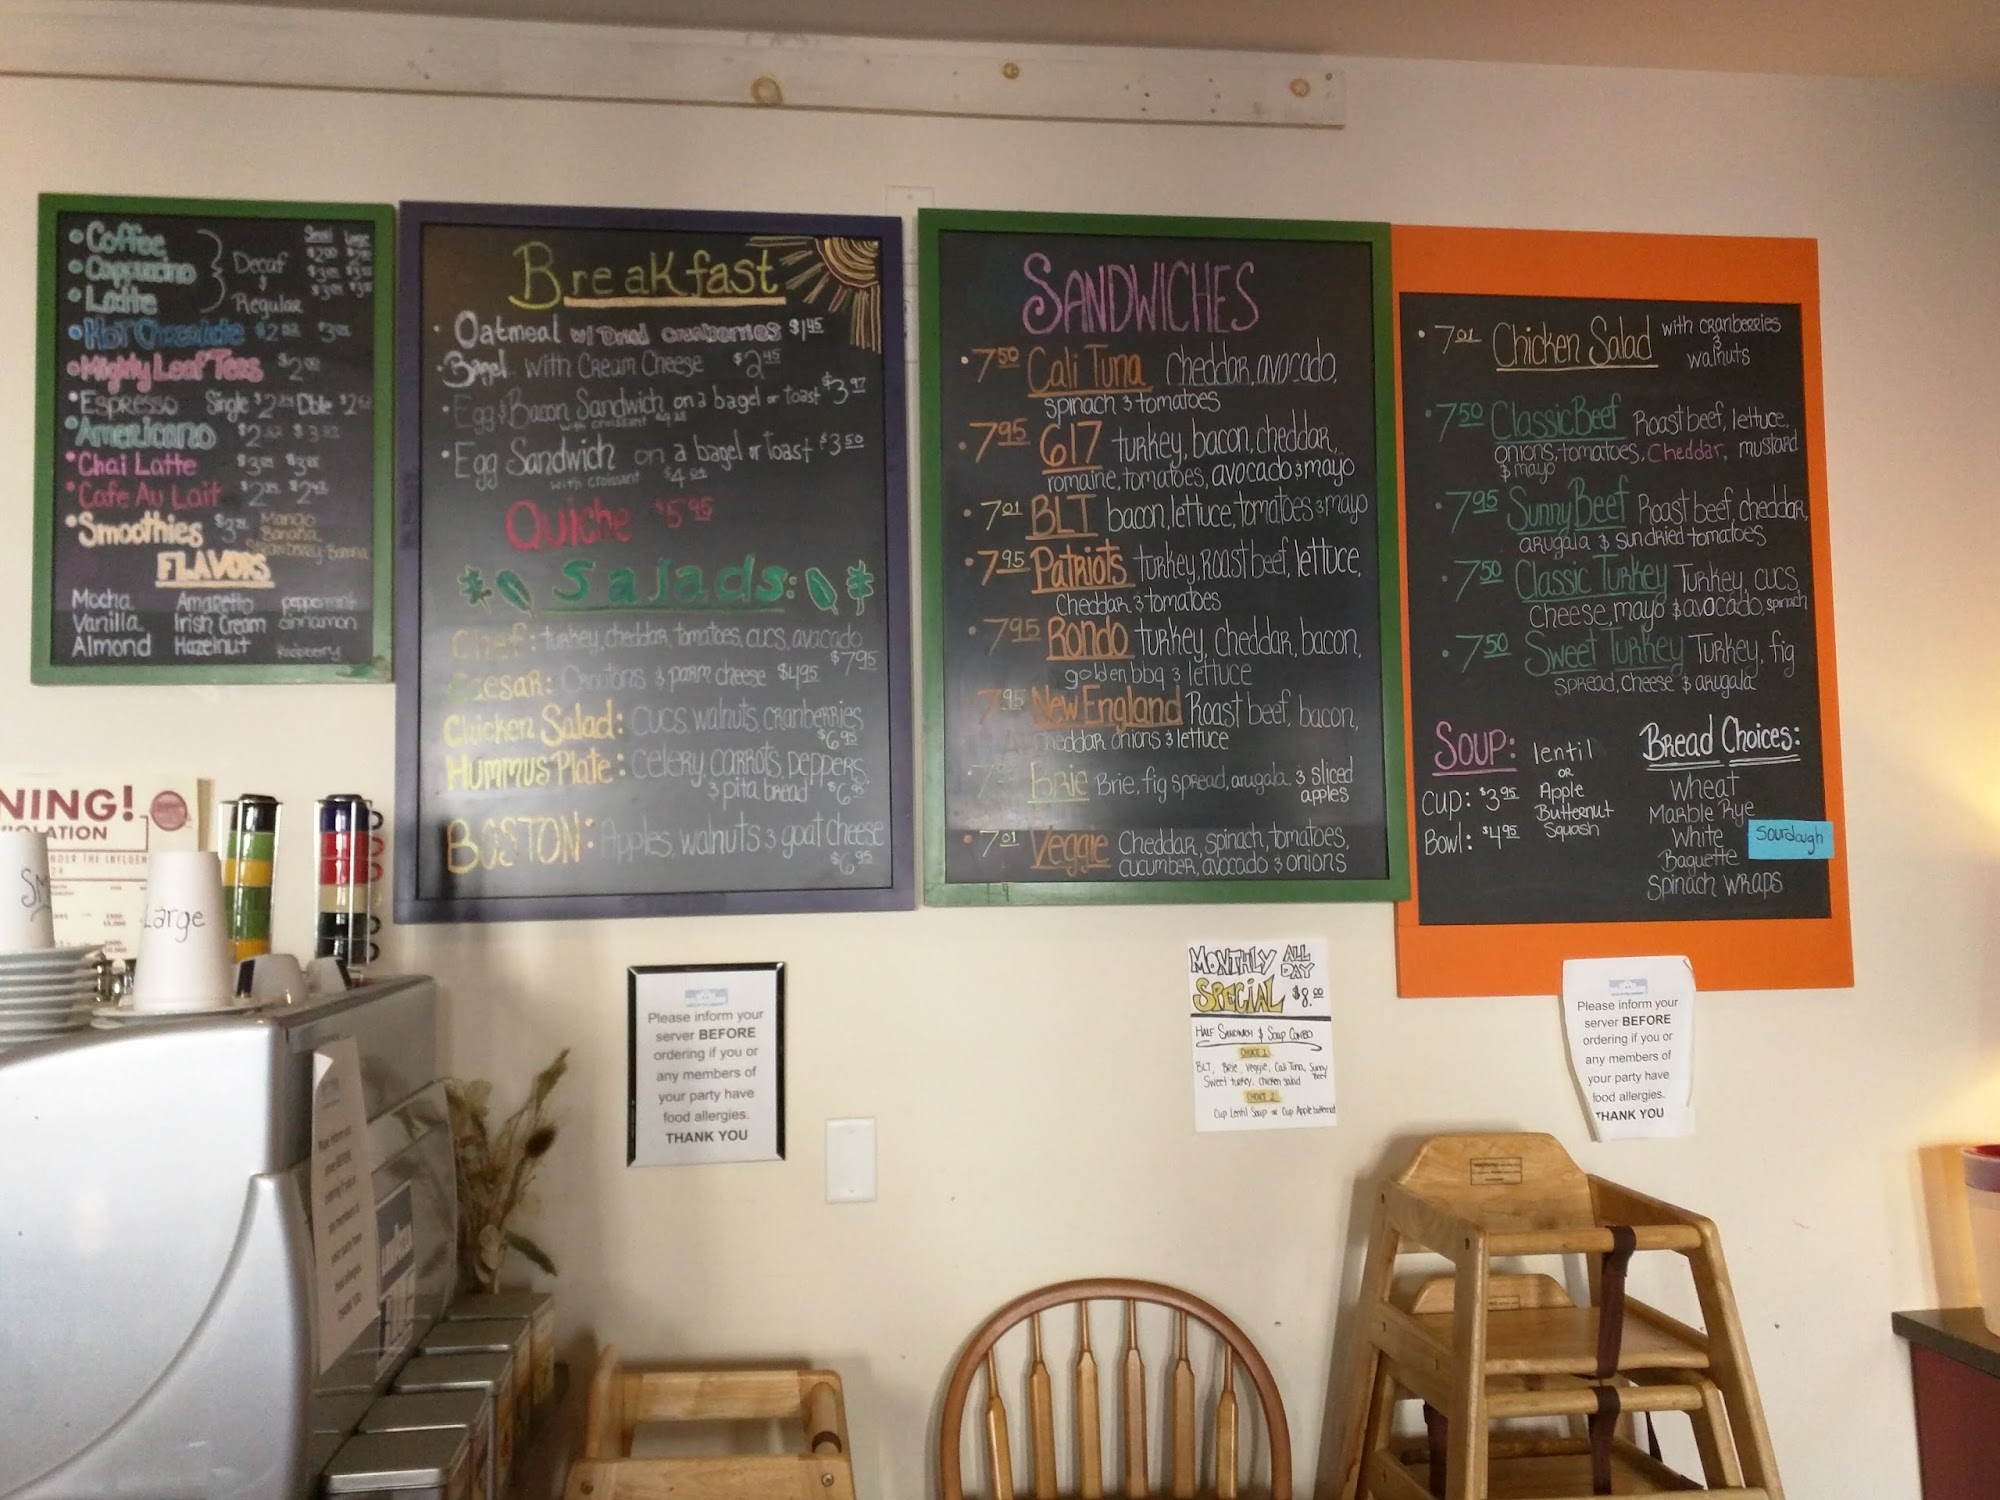 Small Large
Coffee
Cappuccino
Latte
Decaf
&
Regular
Hot Chocolate
Mighty Leaf Teas $2
Espresso Single $2 Dble $2
Americano
Chai Latte
Cafe Au Lait
Smoothies
Mango
Banana
Strawberry-Banana
FLAVORS
Mocha Amaretto peppermint
Vanilla Irish Cream cinnamon
Almond Hazelnut Raspberry
Breakfast
Oatmeal w/ Dried cranberries $1.45
Bagel with Cream Cheese $2.45
Egg & Bacon Sandwich on a bagel or toast $3.97
with croissant
Egg Sandwich on a bagel or toast $3.50
with croissant $4.01
Quiche $5.95
Salads:
Chef: turkey, cheddar, tomatoes, cucs, avocado
$7.95
Caesar: Croutons & parm cheese $4.95
Chicken Salad: cucs, walnuts, cranberries
$6.95
Hummus Plate: celery, carrots, peppers
& pita bread $6.95
BOSTON: Apples, walnuts & goat cheese
$6.95
SANDWICHES
7.50 Cali Tuna cheddar, avocado,
spinach & tomatoes
7.95 617 turkey, bacon, cheddar,
romaine, tomatoes, avocado & mayo
7.01 BLT bacon, lettuce, tomatoes & mayo
7.95 Patriots turkey, Roast beef, lettuce,
Cheddar & tomatoes
7.95 Rondo turkey, cheddar, bacon,
golden bbq & lettuce
7.95 New England Roast beef, bacon,
cheddar onions & lettuce
Brie Brie, fig spread, arugala, & sliced
apples
7.01 Veggie Cheddar, spinach, tomatoes,
cucumber, avocado & onions
7.01 Chicken Salad with cranberries
&
walnuts
7.50 Classic Beef Roast beef, lettuce,
onions, tomatoes, Cheddar, mustard
& mayo
7.95 Sunny Beef Roast beef, cheddar,
arugala & sundried tomatoes
7.50 Classic Turkey Turkey, cucs,
Cheese, mayo & avocado, spinach
7.50 Sweet Turkey Turkey, fig
spread, cheese & arugala
SOUP: lentil
OR
Apple
Butternut
Squash
Cup: $3.95
Bowl: $4.95
Bread Choices:
Wheat
Marble Rye
White
Baguette
Spinach wraps
Sourdough
NING!
VIOLATION
NDER THE INFLUEN
SM
Large
Please inform your
server BEFORE
ordering if you or
any members of
your party have
food allergies.
THANK YOU
MONTHLY ALL
DAY
SPECIAL $8.00
Half Sandwich & Soup Combo
CHOICE 1
BLT, Brie, Veggie, Cali Tuna, Sunny
Beef
Sweet turkey, chicken salad
CHOICE 2
Cup Lentil Soup or Cup Apple butternut
Please inform your
server BEFORE
ordering if you or
any members of
your party have
food allergies.
THANK YOU